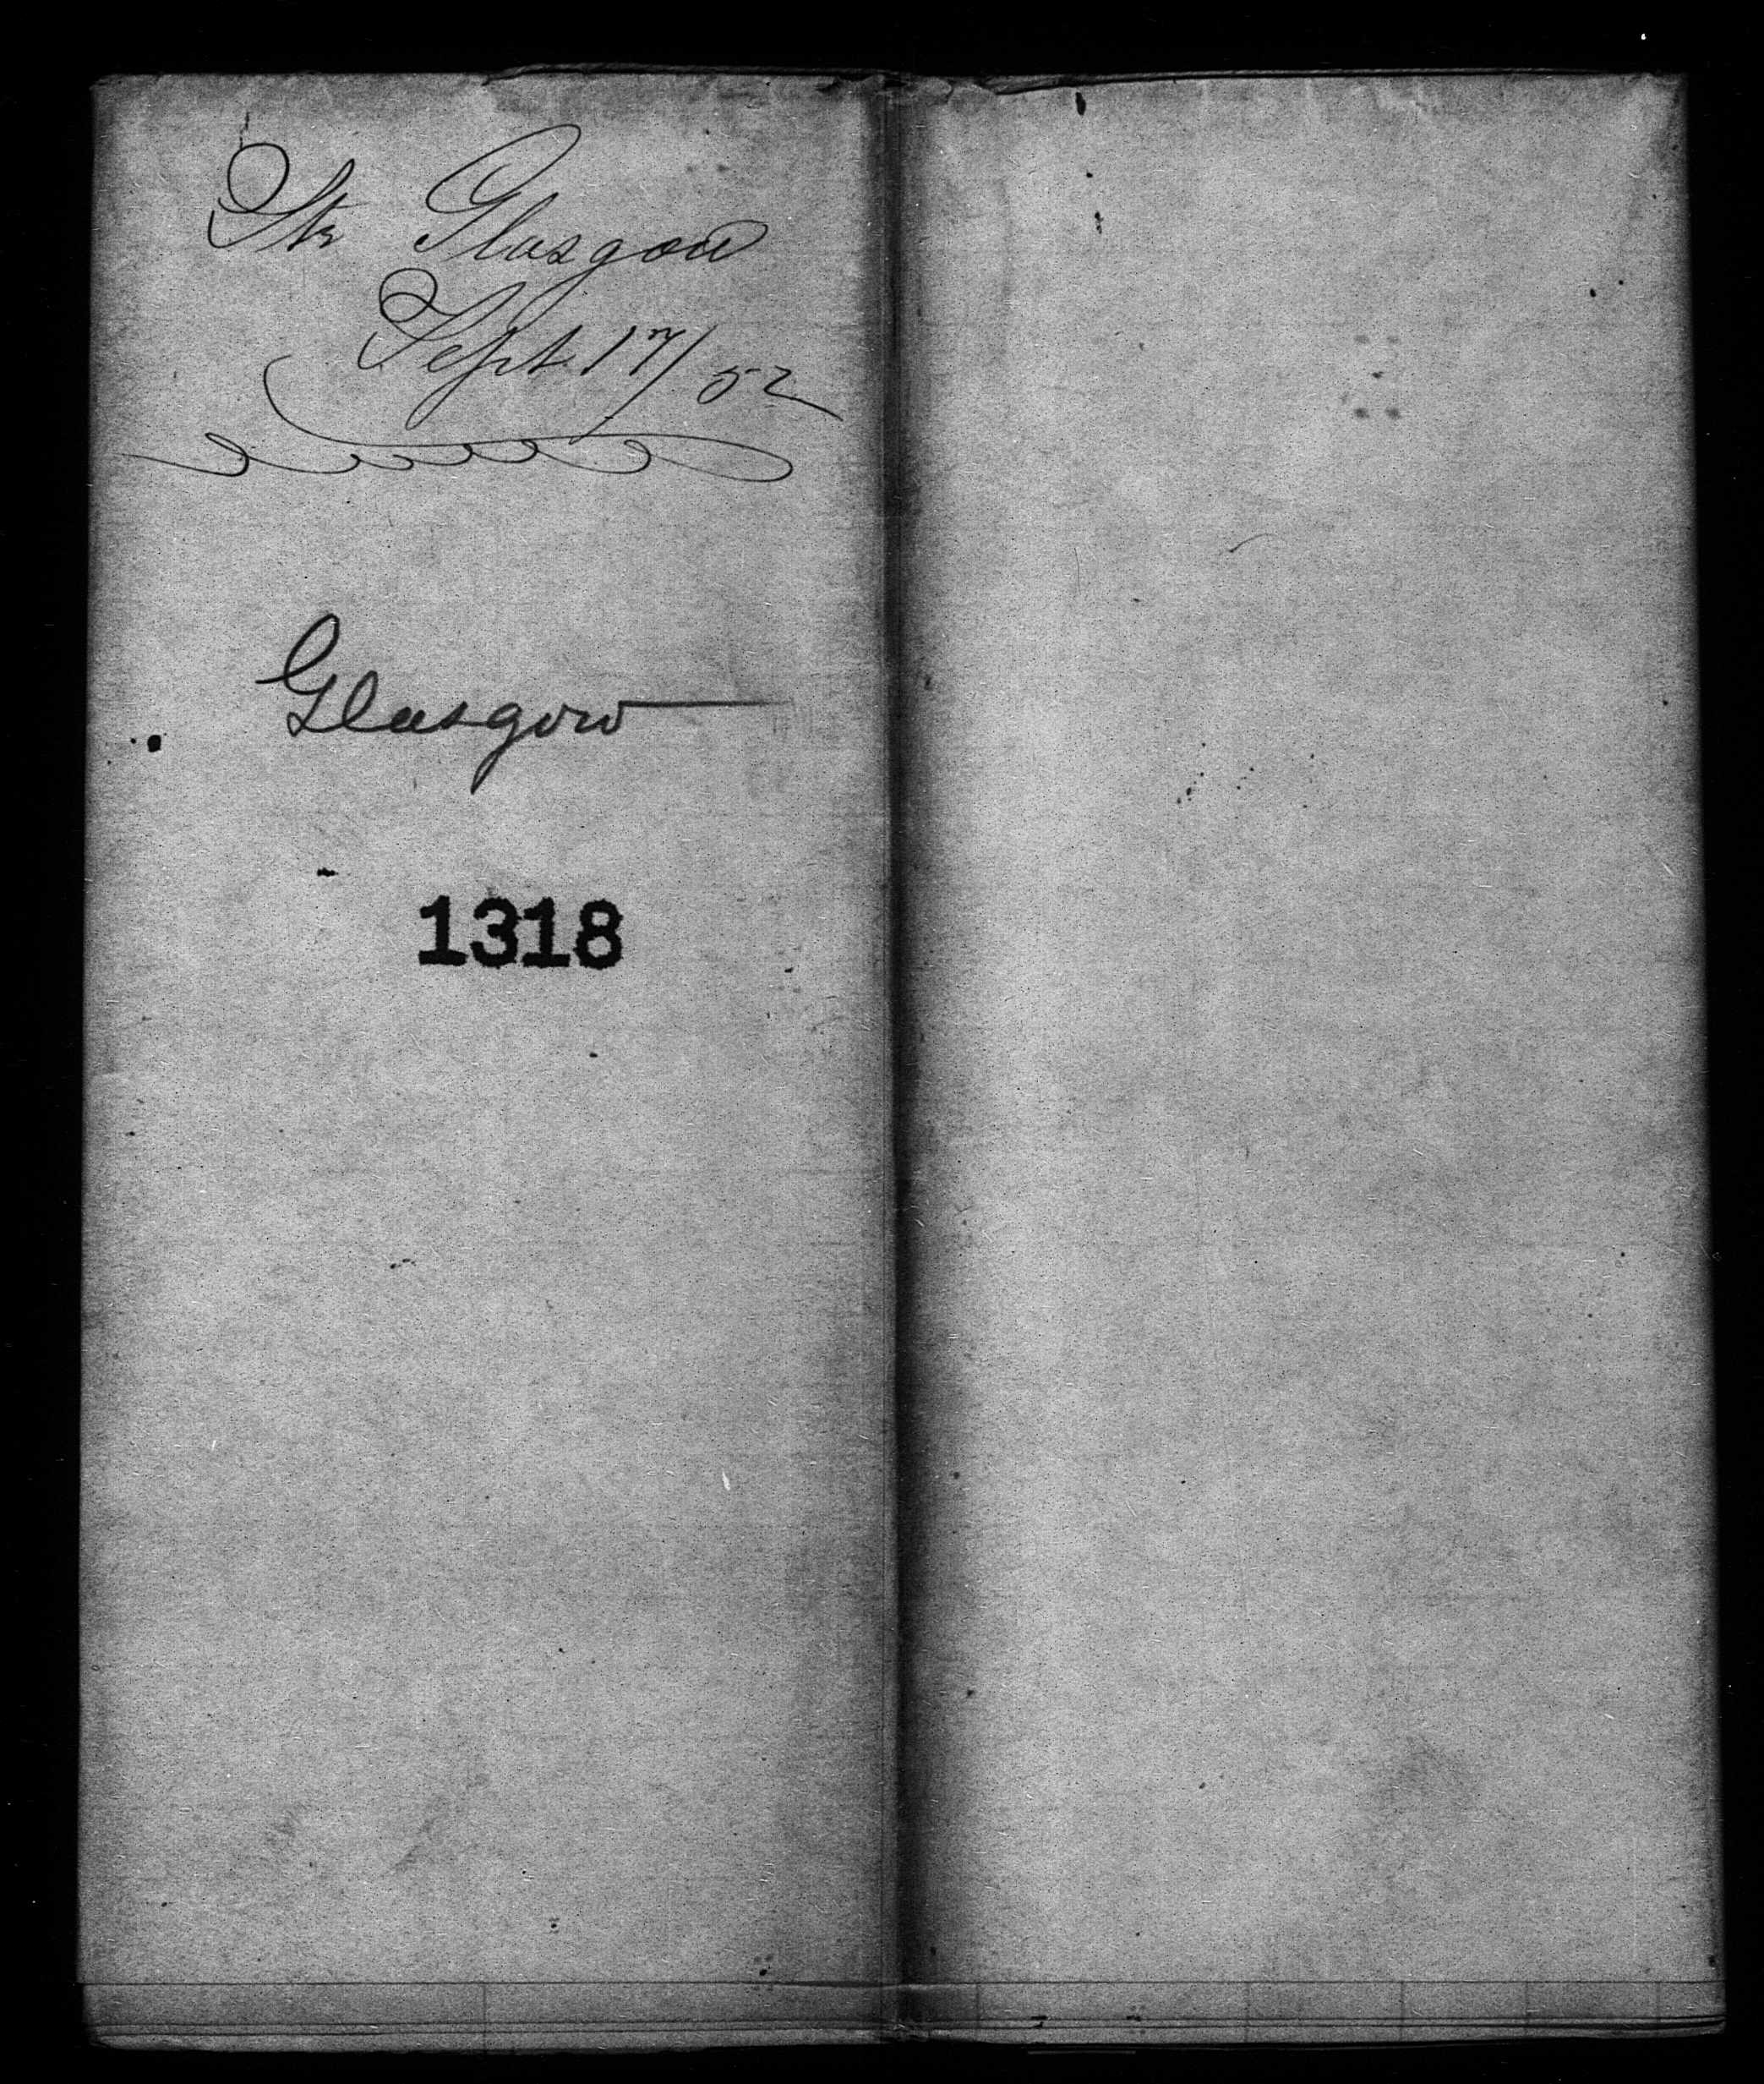 Str Glasgow
Sept. 17/52
Glasgow
1318